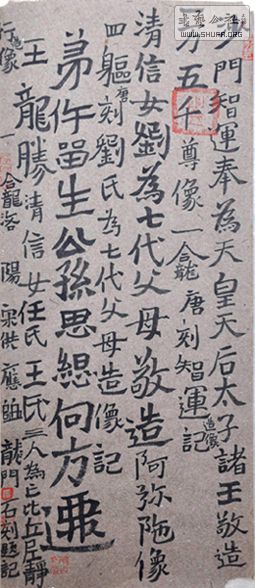 沙門智運奉為天皇天后太子諸王敬造
万五千尊像一龕 唐刻智運造像記
清信女劉為七代父母敬造阿弥陁像
四軀 唐刻劉氏為七代父母造像記
弟仵留生公孫思 何方
王龍勝清信女任氏王氏三人為亡比丘尼静
行造像一龕 洛陽 龍門石刻題記
公社